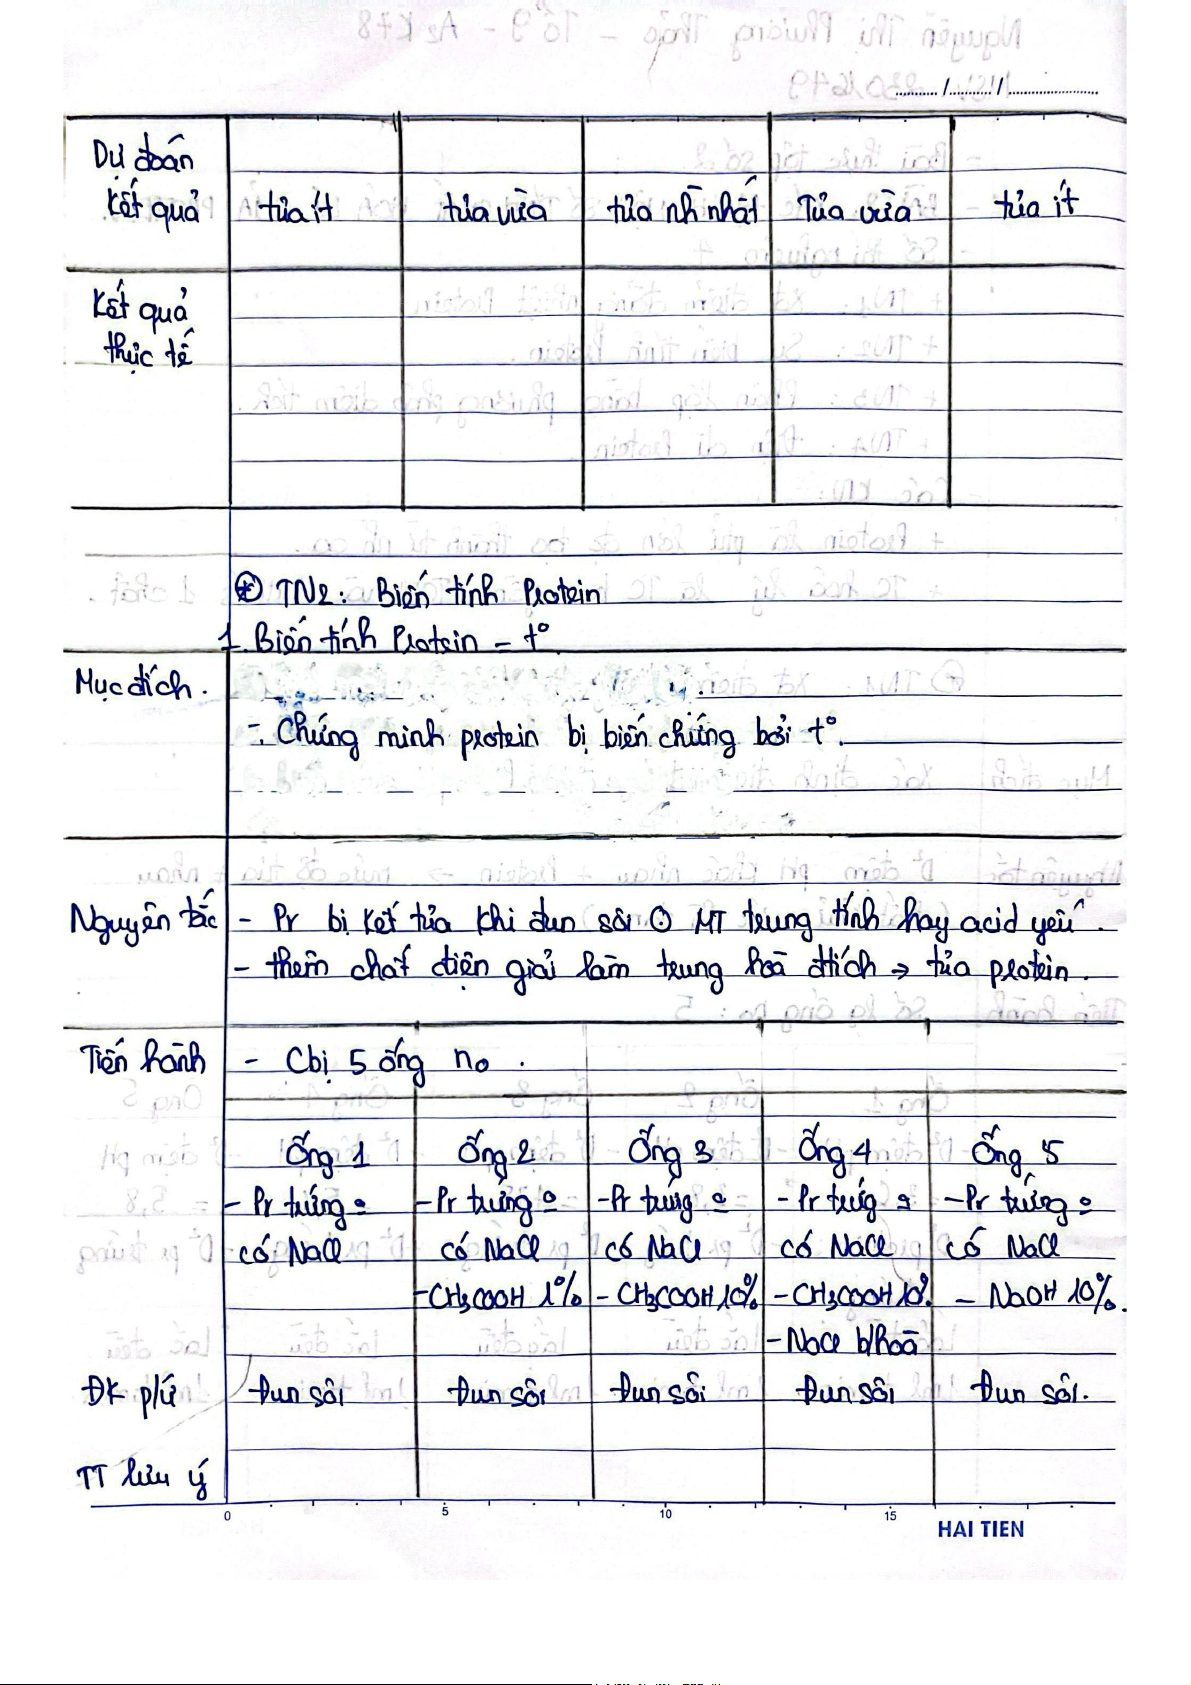 Dự đoán
kết quả tủa ít tủa vừa tủa nh nhất Tủa vừa tủa ít
Kết quả
thực tế
TN2: Biến tính Protein
1. Biến tính Protein - t°
Mục đích.
- Chứng minh protein bị biến chứng bởi t°.
Nguyên tắc - Pr bị kết tủa khi đun sôi MT trung tính hay acid yếu.
- thêm chất điện giải làm trung hoà đtích → tủa protein.
Tiến hành - Cbị 5 ống no.
Ống 1 Ống 2 Ống 3 Ống 4 Ống 5
- Pr trứng - Pr trứng - Pr trứng - Pr trứg - Pr trứng
có NaCl có NaCl có NaCl có NaCl có NaCl
- CH3COOH 1% - CH3COOH 10% - CH3COOH 10% - NaOH 10%.
- NaCl b/hoà
ĐK p/ứ Đun sôi Đun sôi Đun sôi Đun sôi Đun sôi.
TT lưu ý
0 5 10 15
HAI TIEN